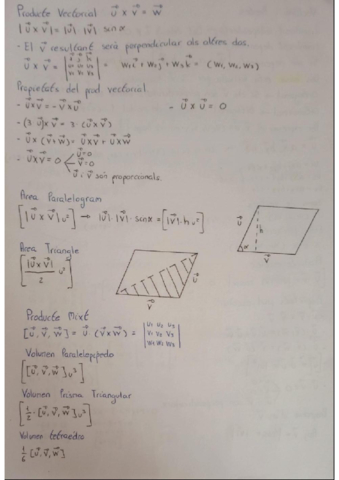 Producte Vectorial u⃗ x v⃗ = w⃗
|u⃗ x v⃗| = |u⃗| · |v⃗| sinα
- El v⃗ resultant serà perpendicular als altres dos.
u⃗ x v⃗ = |i⃗ j⃗ k⃗ / u₁ u₂ u₃ / v₁ v₂ v₃| = w₁i⃗ + w₂j⃗ + w₃k⃗ = (w₁, w₂, w₃)
Propietats del prod vectorial
- u⃗xv⃗ = -v⃗xu⃗ - u⃗ x u⃗ = 0
- (3·u⃗)x v⃗ = 3·(u⃗xv⃗)
- u⃗x(v⃗+w⃗) = u⃗xv⃗ + u⃗xw⃗
- u⃗xv⃗=0
u⃗=0
v⃗=0
u⃗ i v⃗ són proporcionals.
Àrea Paralelogram
[|u⃗ x v⃗| u²] → |u⃗|·|v⃗|·sinα = [|v⃗|·h u²]
u⃗
h
α
v⃗
Àrea Triangle
[|u⃗xv⃗| / 2 u²]
u⃗
v⃗
Producte Mixt
[u⃗, v⃗, w⃗] = u⃗ (v⃗xw⃗) = |u₁ u₂ u₃ / v₁ v₂ v₃ / w₁ w₂ w₃|
Volumen Paralelepípedo
[[u⃗, v⃗, w⃗] u³]
Volumen Prisma Triangular
[½·[u⃗, v⃗, w⃗] u³]
Volumen tetraedro
⅙ [u⃗, v⃗, w⃗]